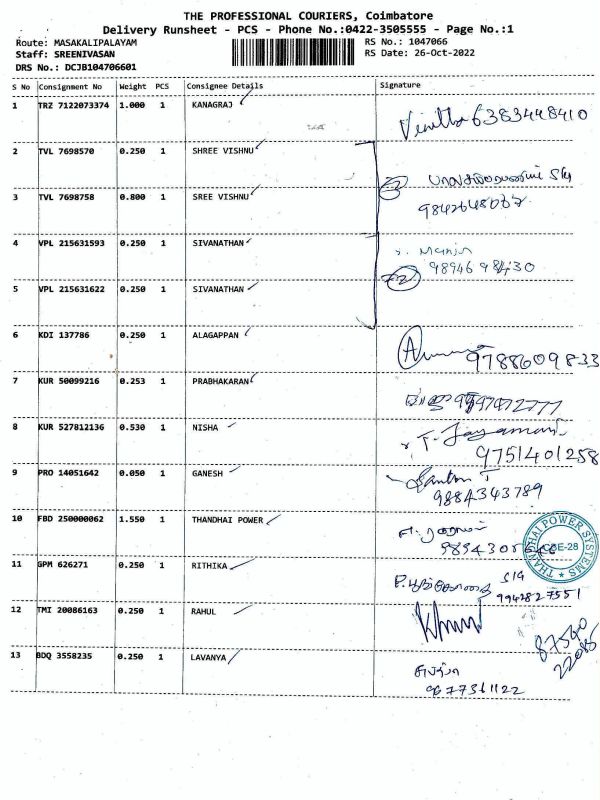 THE PROFESSIONAL COURIERS, Coimbatore
Delivery Runsheet - PCS - Phone No.:0422-3505555 - Page No.:1
Route: MASAKALIPALAYAM RS No.: 1047066
Staff: SREENIVASAN RS Date: 26-Oct-2022
DRS No.: DCJB104706601
S No Consignment No Weight PCS Consignee Details Signature
1 TRZ 7122073374 1.000 1 KANAGRAJ
6383448410
2 TVL 7698570 0.250 1 SHREE VISHNU
3 TVL 7698758 0.800 1 SREE VISHNU
4 VPL 215631593 0.250 1 SIVANATHAN
98946 98430
5 VPL 215631622 0.250 1 SIVANATHAN
6 KDI 137786 0.250 1 ALAGAPPAN
9788609833
7 KUR 50099216 0.253 1 PRABHAKARAN
8 KUR 527812136 0.530 1 NISHA
T. Jayamani
9751401258
9 PRO 14051642 0.050 1 GANESH
9884343789
10 FBD 250000062 1.550 1 THANDHAI POWER
THANDHAI POWER SYSTEMS
CBE-28
11 GPM 626271 0.250 1 RITHIKA
S/G
9942827551
12 TMI 20086163 0.250 1 RAHUL
87540
22085
13 BDQ 3558235 0.250 1 LAVANYA
9677361122